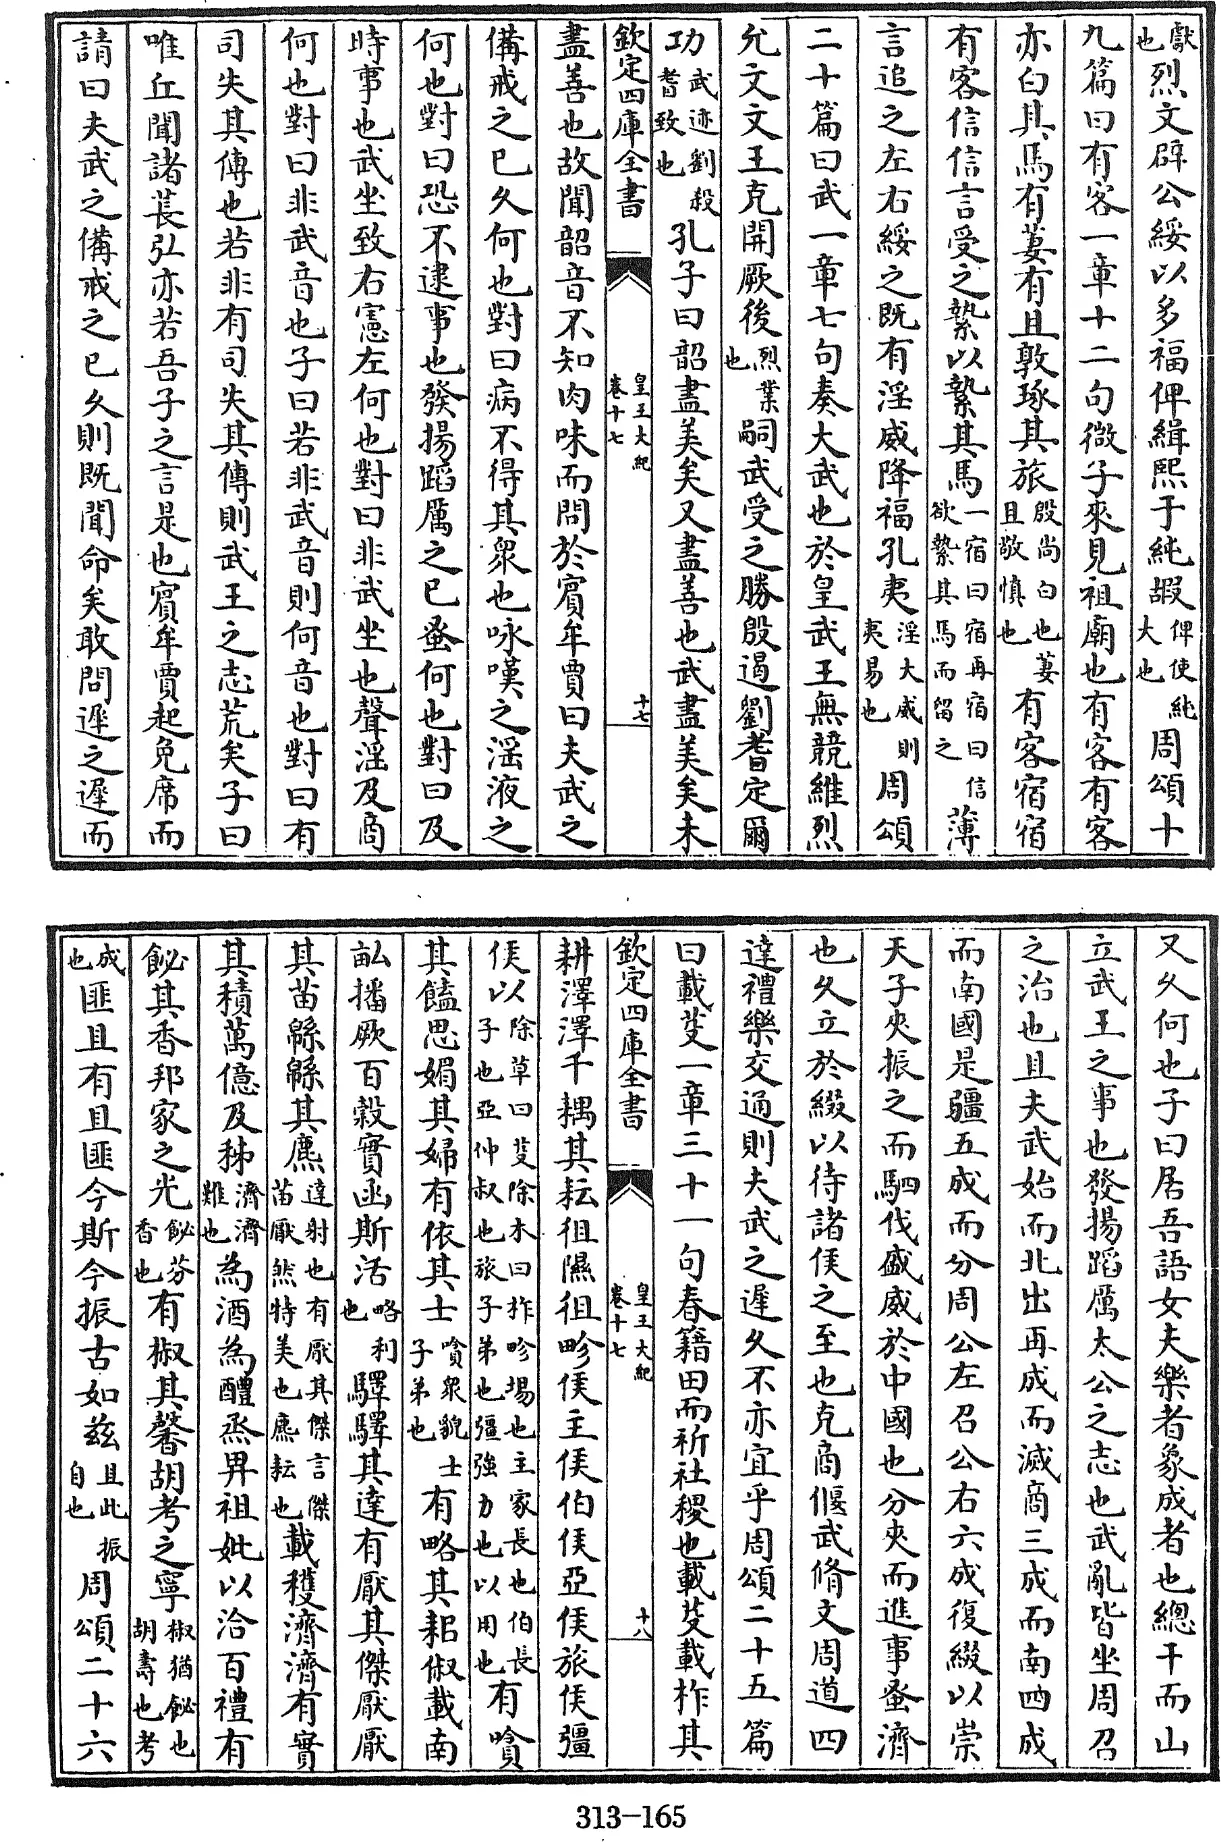 獻也烈文辟公綏以多福俾緝熙于純嘏俾使純大也周頌十
九篇曰有客一章十二句微子來見祖廟也有客有客
亦白其馬有萋有且敦琢其旅殷尚白也萋且敬慎也有客宿宿
有客信信言受之縶以縶其馬一宿曰宿再宿曰信欲縶其馬而留之薄
言追之左右綏之既有淫威降福孔夷淫大威則夷易也周頌
二十篇曰武一章七句奏大武也於皇武王無競維烈
允文文王克開厥後烈業也嗣武受之勝殷遏劉耆定爾
功武迹劉殺耆致也孔子曰韶盡美矣又盡善也武盡美矣未
欽定四庫全書 皇王大紀卷十七 十七
盡善也故聞韶音不知肉味而問於賓牟賈曰夫武之
備戒之已久何也對曰病不得其衆也咏嘆之淫液之
何也對曰恐不逮事也發揚蹈厲之已蚤何也對曰及
時事也武坐致右憲左何也對曰非武坐也聲淫及商
何也對曰非武音也子曰若非武音則何音也對曰有
司失其傳也若非有司失其傳則武王之志荒矣子曰
唯丘聞諸萇弘亦若吾子之言是也賓牟賈起免席而
請曰夫武之備戒之已久則既聞命矣敢問遲之遲而
又久何也子曰居吾語女夫樂者象成者也總干而山
立武王之事也發揚蹈厲太公之志也武亂皆坐周召
之治也且夫武始而北出再成而滅商三成而南四成
而南國是疆五成而分周公左召公右六成復綴以崇
天子夾振之而駟伐盛威於中國也分夾而進事蚤濟
也久立於綴以待諸侯之至也克商偃武脩文周道四
達禮樂交通則夫武之遲久不亦宜乎周頌二十五篇
曰載芟一章三十一句春籍田而祈社稷也載芟載柞其
欽定四庫全書 皇王大紀卷十七 十八
耕澤澤千耦其耘徂隰徂畛侯主侯伯侯亞侯旅侯彊
侯以除草曰芟除木曰柞畛埸也主家長也伯長子也亞仲叔也旅子弟也彊強力也以用也有嗿
其饁思媚其婦有依其士嗿衆貌士子弟也有略其耜俶載南
畝播厥百穀實函斯活略利也驛驛其達有厭其傑厭厭
其苗緜緜其麃達射也有厭其傑言傑苗厭然特美也麃耘也載穫濟濟有實
其積萬億及秭濟濟難也為酒為醴烝畀祖妣以洽百禮有
飶其香邦家之光飶芬香也有椒其馨胡考之寧椒猶飶也胡壽也考
成也匪且有且匪今斯今振古如兹且此振自也周頌二十六
313-165